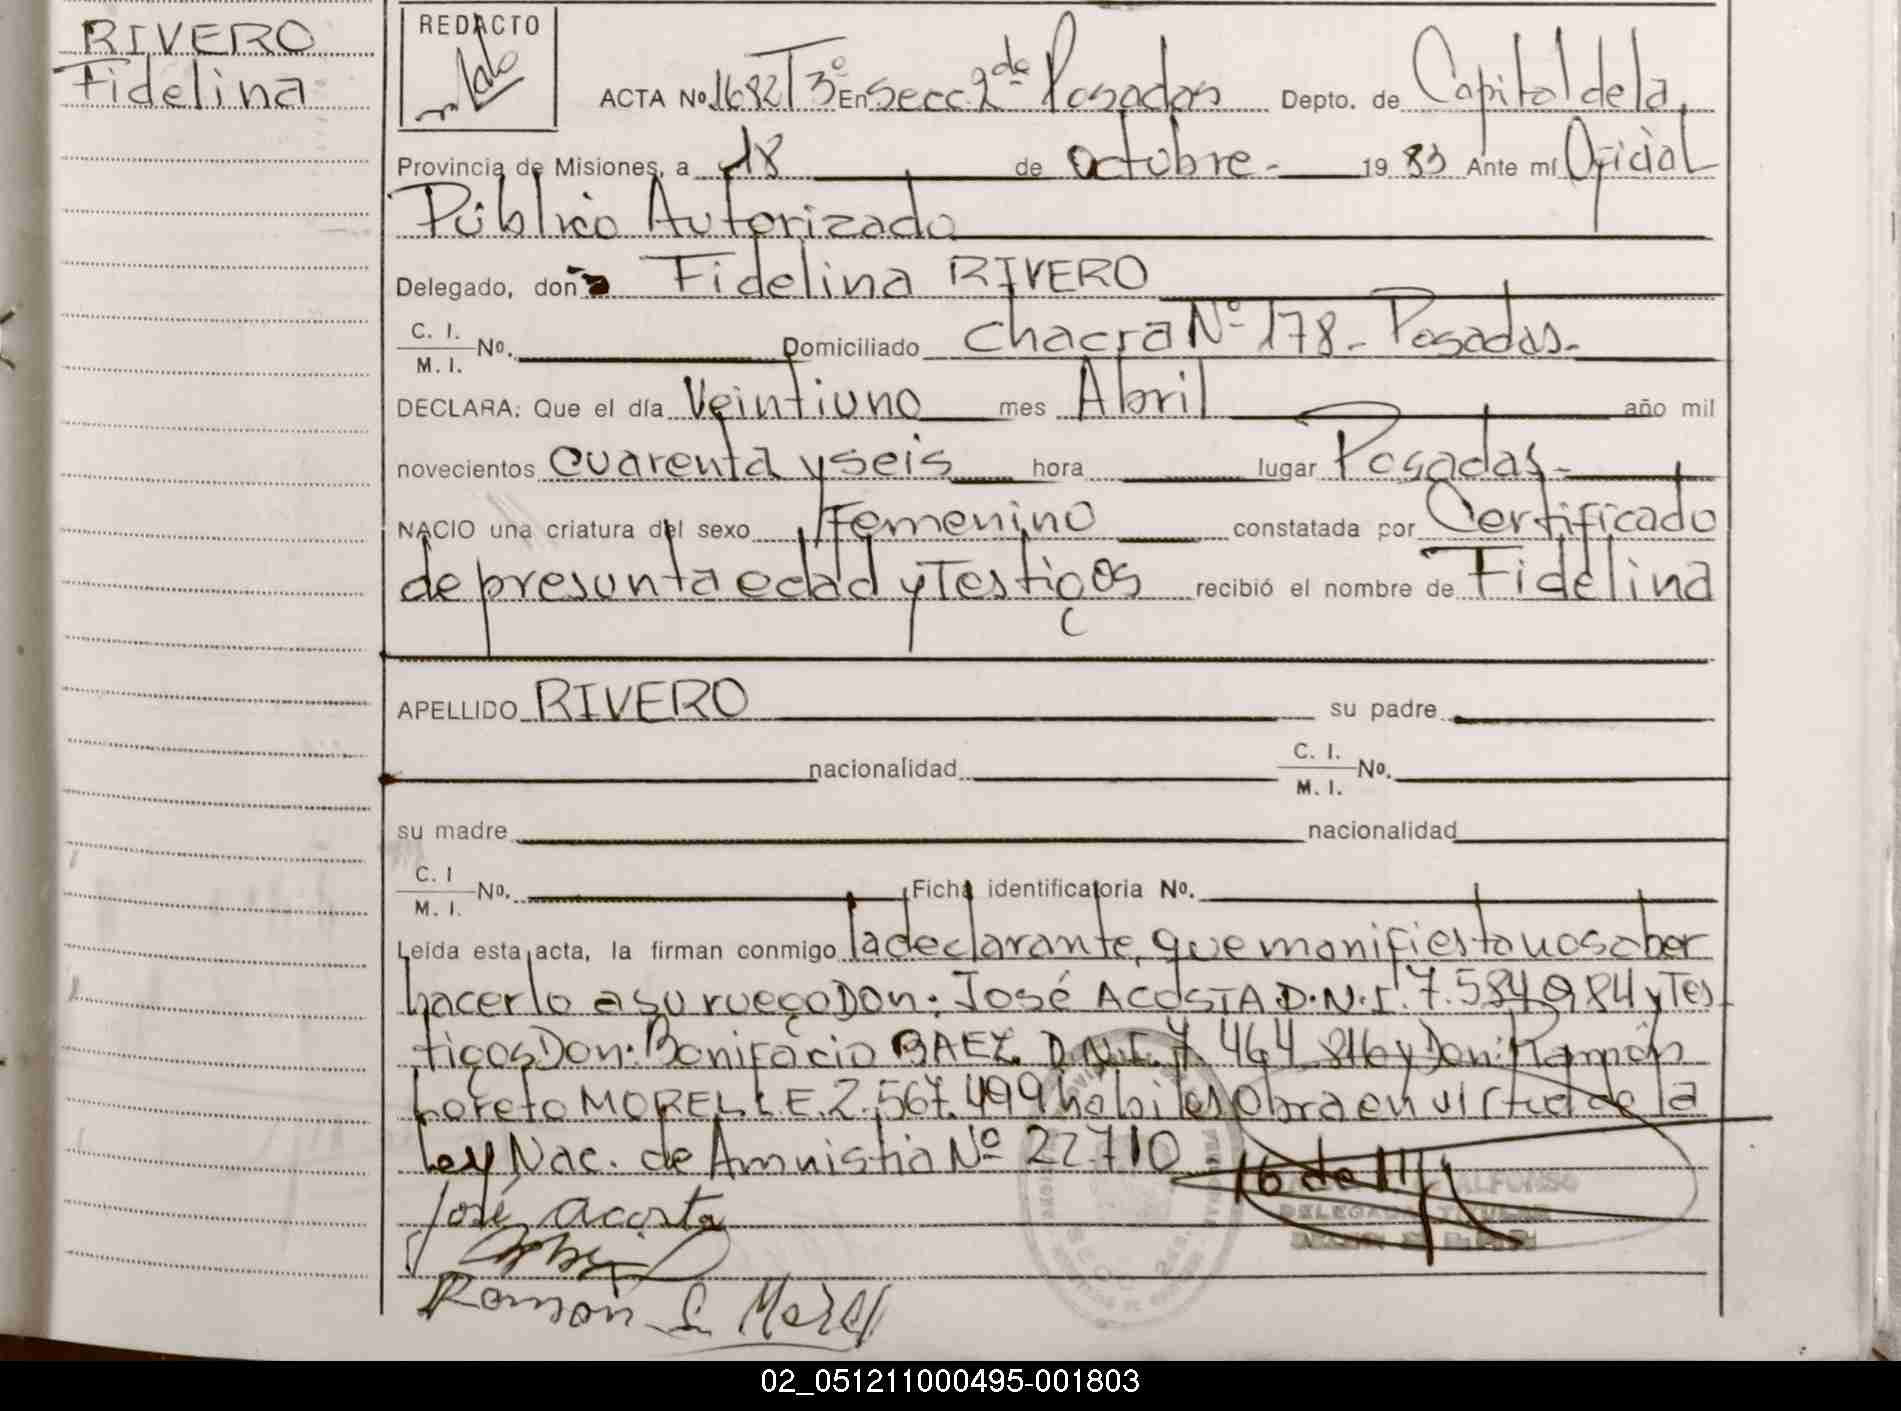 RIVERO
Fidelina
REDACTO
ACTA No. 1682 T 3º En Secc. 2da Posadas Depto. de Capital de la
Provincia de Misiones, a 18 de octubre - 19 83 Ante mí Oficial
Público Autorizado
Delegado, doña Fidelina RIVERO
C. I.
M. I. No. Domiciliado Chacra Nº 178 - Posadas -
DECLARA: Que el día Veintiuno mes Abril año mil
novecientos cuarenta y seis hora lugar Posadas -
NACIO una criatura del sexo Femenino constatada por Certificado
de presunta edad y Testigos recibió el nombre de Fidelina
APELLIDO RIVERO su padre
nacionalidad C. I.
M. I. No.
su madre nacionalidad
C. I
M. I. No. Ficha identificatoria No.
Leída esta acta, la firman conmigo la declarante, que manifiesta no saber
hacerlo a su ruego Don: José ACOSTA D.N.I. 7.584.984 y Tes
tigos Don: Bonifacio BAEZ D.N.I. 7.464.816 y Don: Ramón
Loreto MOREL L.E. 2.567.499 habiles Obra en virtud de la
Ley Nac. de Amnistia Nº 22.710
16 de
ALFONSO
DELEGADA TITULAR
José Acosta
Ramon L. Morel
02_051211000495-001803